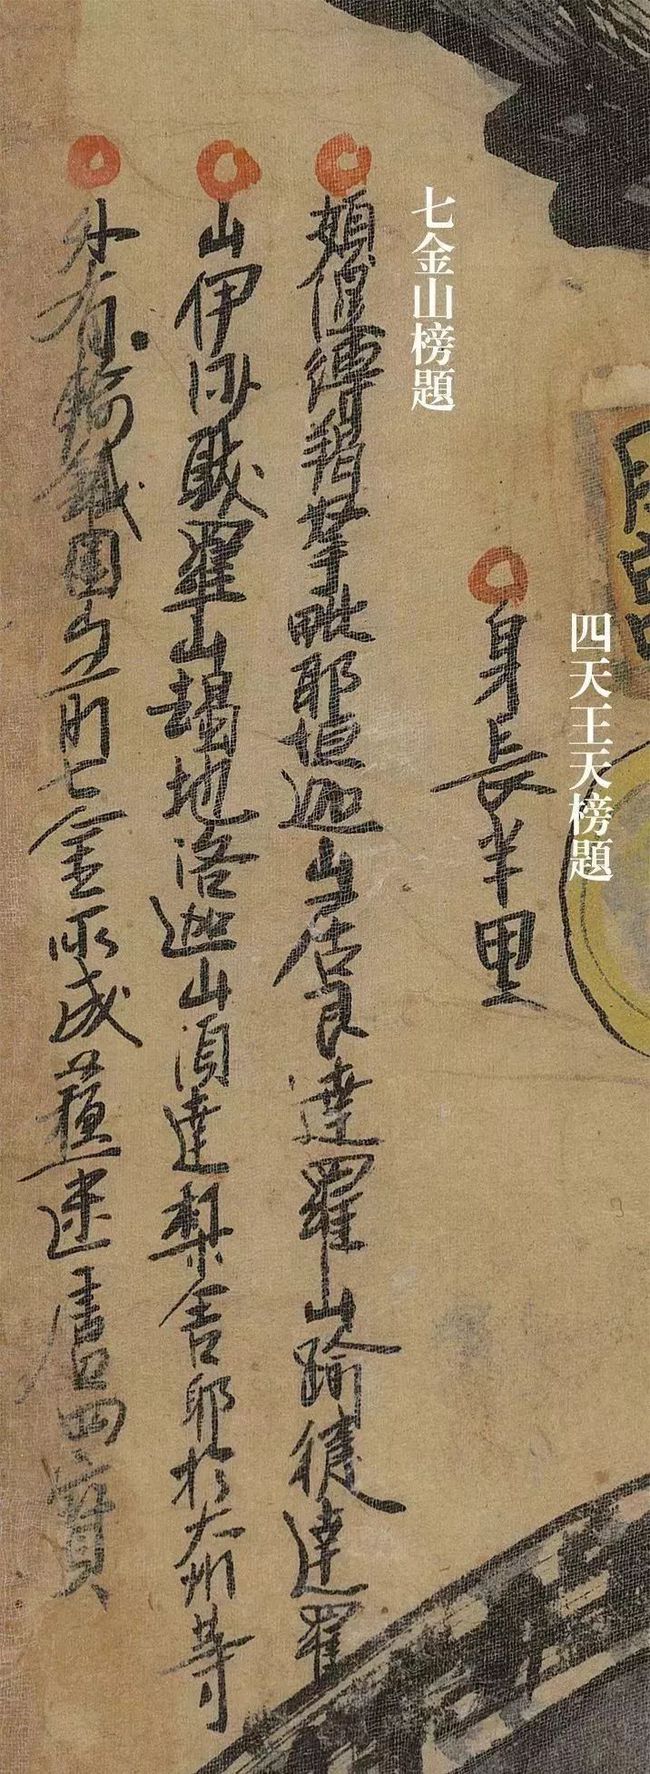 四天王天榜題
身長半里
七金山榜題
頞湿縛羯拏毗耶怛迦山居民達羅山踰健達羅
山伊沙馱羅山朅地洛迦山須達梨舍耶於大州等
外有輪鐵圍山前七金所成蘇迷盧四寶